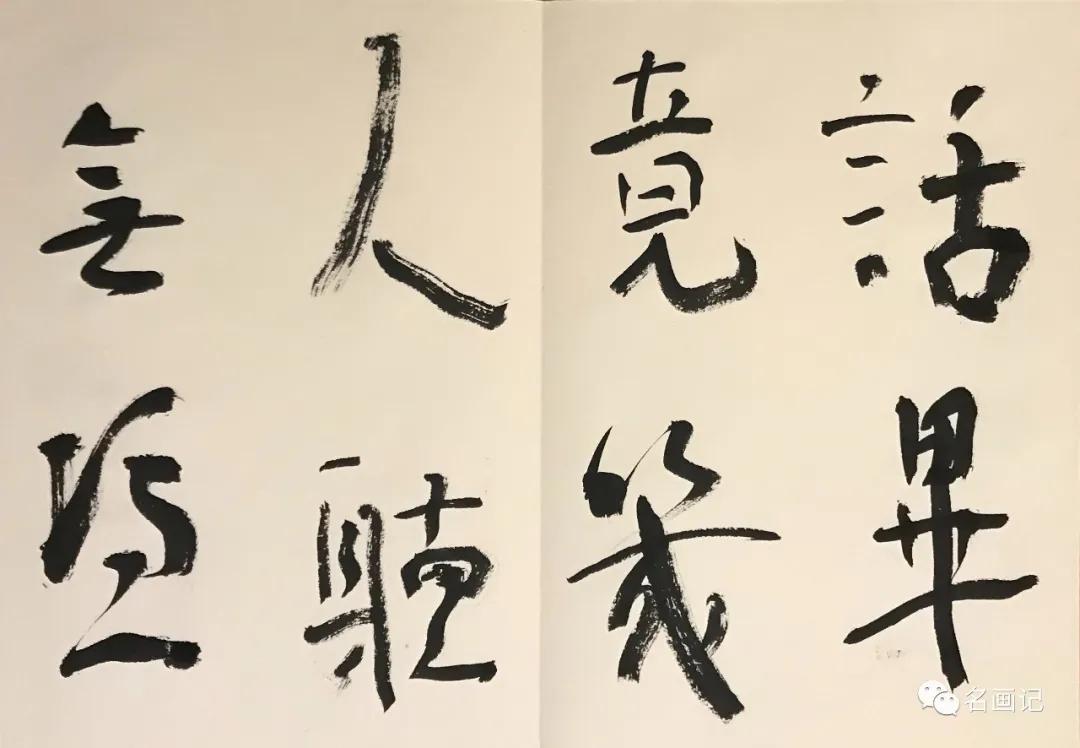 話畢
竟幾
人聽
無憑
名画记